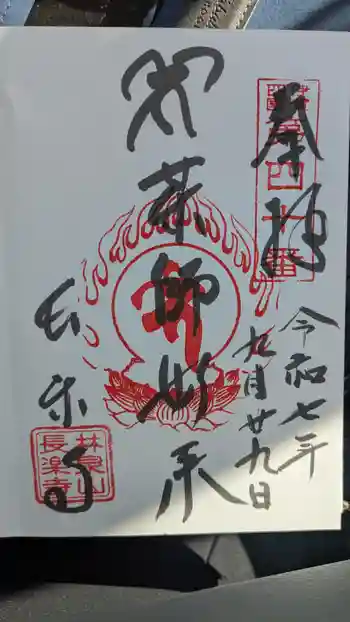 奉拝
第四十番
令和七年
九月廿九日
薬師如来
長楽寺
林泉山
長楽寺